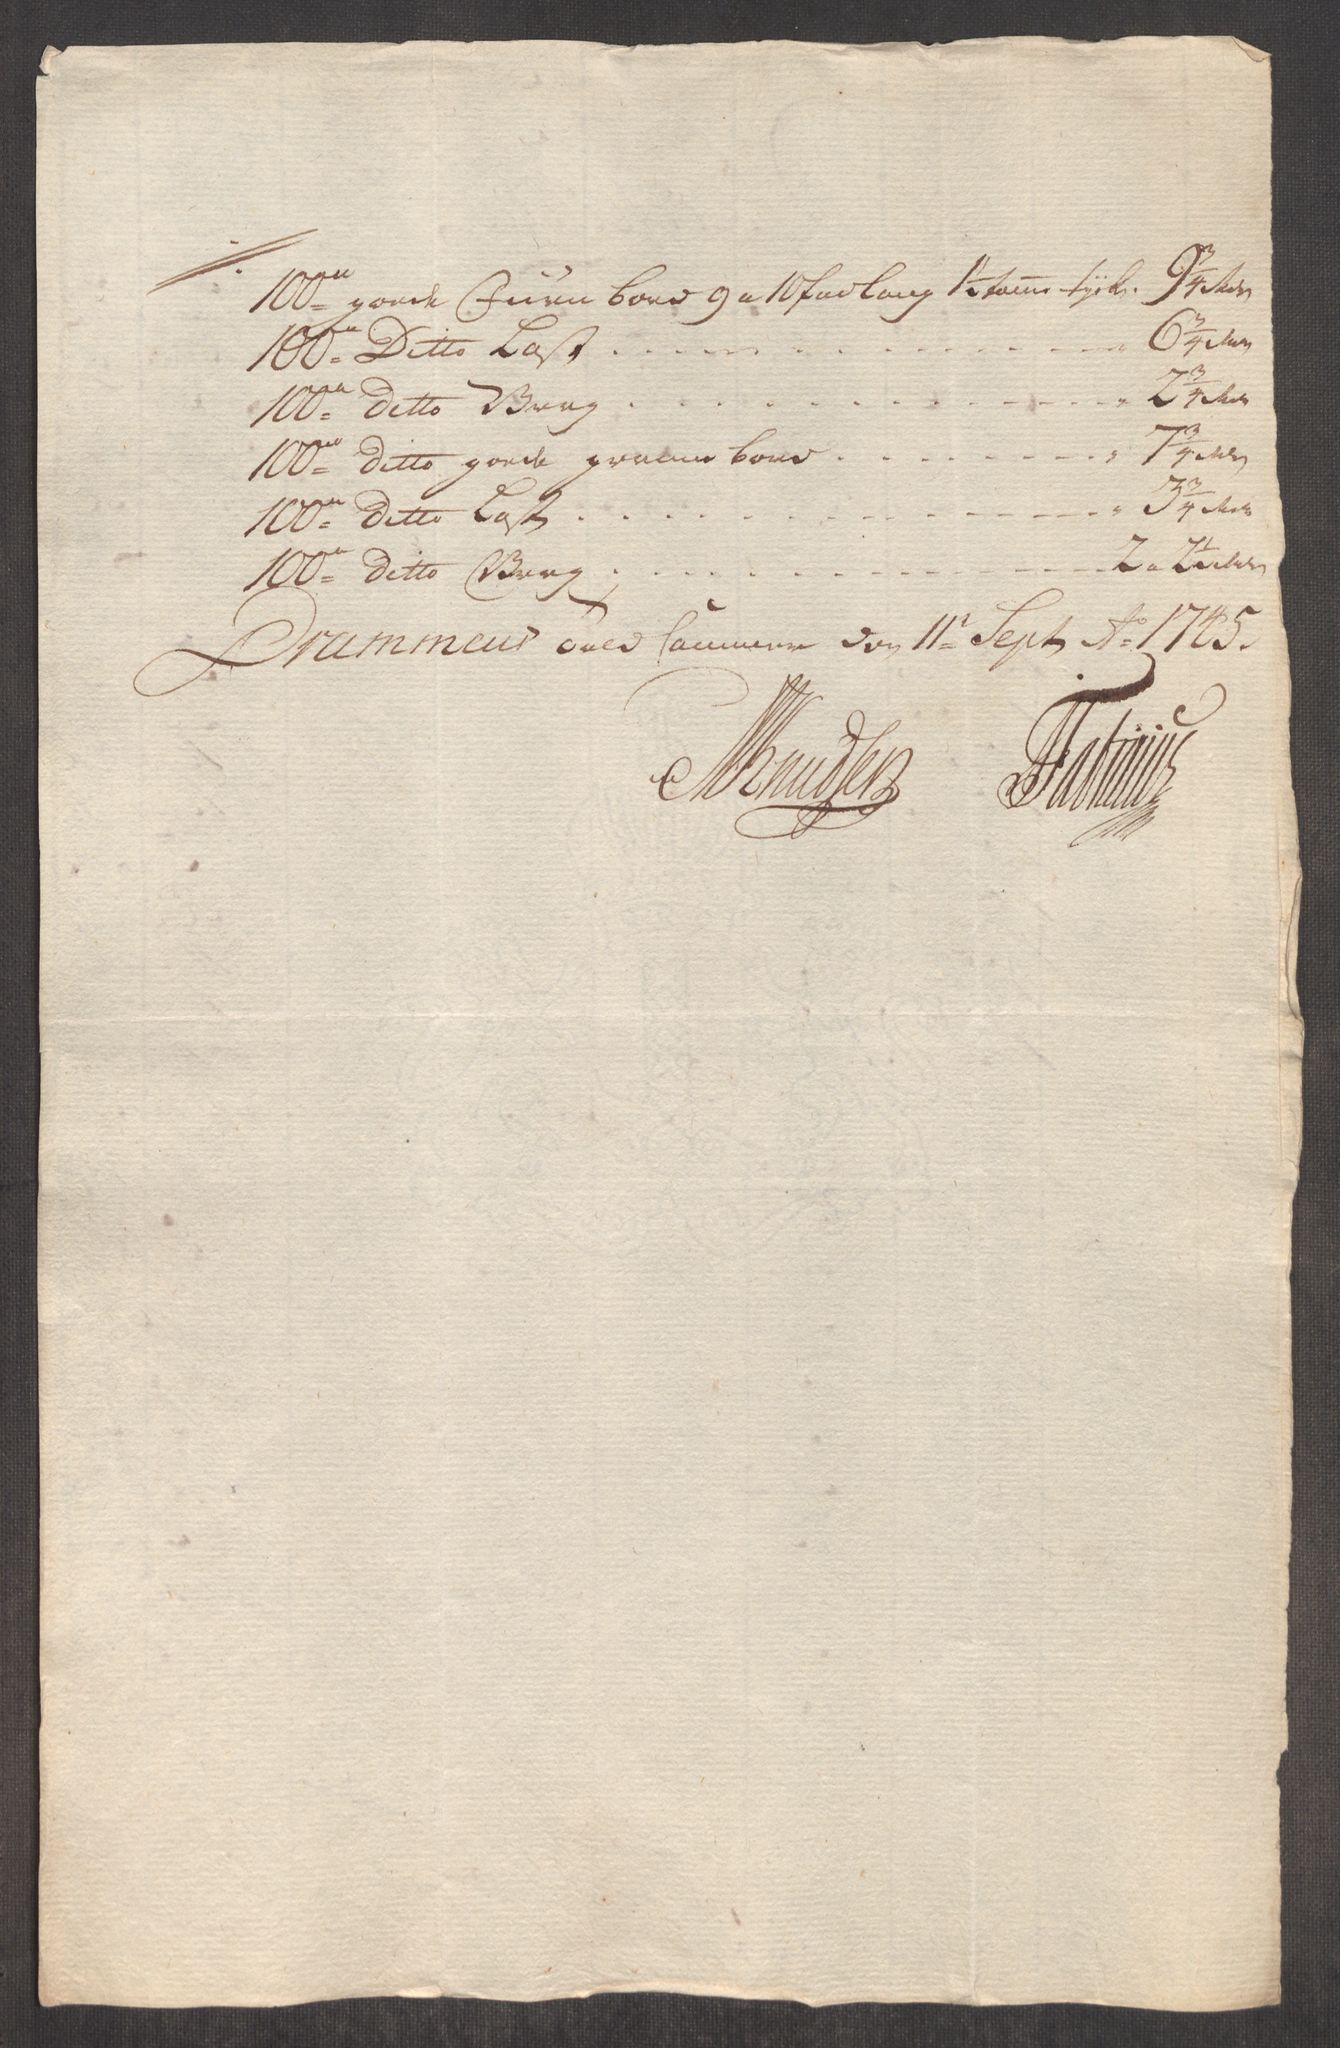 100de goede Fuuren bord 9 a 10 fod lang 1½ tomme tyck. 9¾ rdr
100de Ditto Last 6¾ rdr
100de ditto Vrag 2¾ rdr
100de ditto goede graenne bord 7¾ rdr
100de ditto Last 3¾ rdr
100de ditto Vrag 2 a 2½ rdr
Drammens told Cammer den 11te Sept Ao 1745.
Knudsen Fabritius